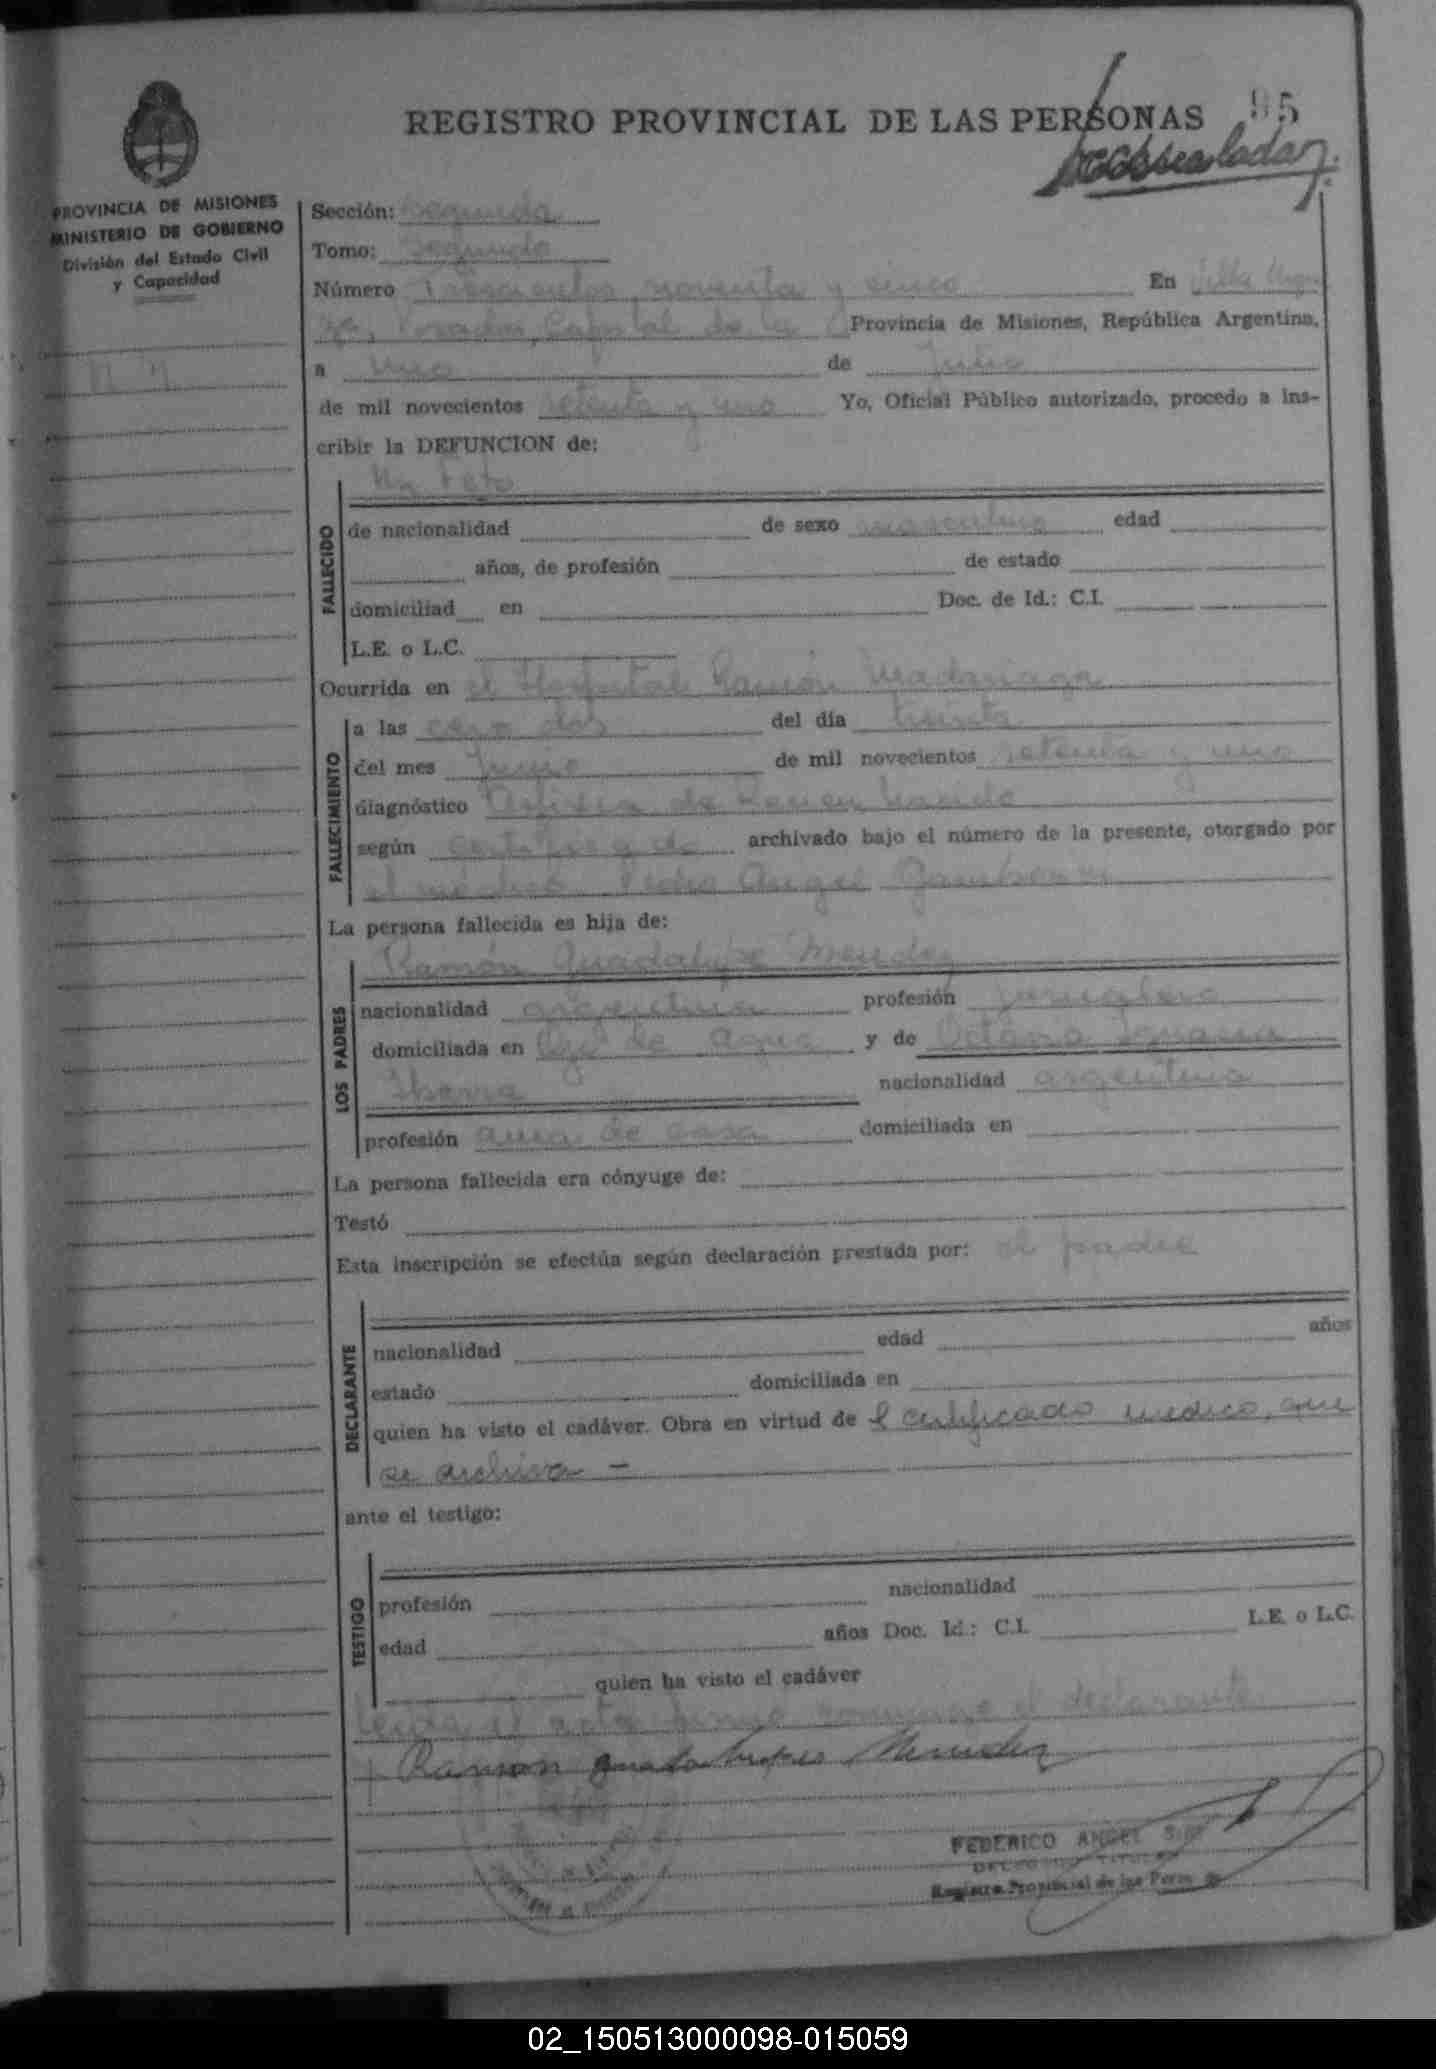 REGISTRO PROVINCIAL DE LAS PERSONAS 95
PROVINCIA DE MISIONES
MINISTERIO DE GOBIERNO
División del Estado Civil
y Capacidad
N. N.
Sección: Segunda
Tomo: Segundo
Número Trescientos noventa y cinco En Villa Urqui
za, Posadas, Capital de la Provincia de Misiones, República Argentina,
a uno de Julio
de mil novecientos setenta y uno Yo, Oficial Público autorizado, procedo a ins-
cribir la DEFUNCION de:
Un Feto
FALLECIDO
de nacionalidad de sexo masculino edad
años, de profesión de estado
domiciliad en Doc. de Id.: C.I.
L.E. o L.C.
Ocurrida en el Hospital Ramón Madariaga
FALLECIMIENTO
a las cero dos del día treinta
del mes Junio de mil novecientos setenta y uno
diagnóstico Asfixia de
según certificado archivado bajo el número de la presente, otorgado por
el médico Pedro Angel
La persona fallecida es hija de:
Ramón Guadalupe Mendez
LOS PADRES
nacionalidad argentina profesión jornalero
domiciliada en Ojo de Agua y de Octavia Ignacia
Ibarra nacionalidad argentina
profesión ama de casa domiciliada en
La persona fallecida era cónyuge de:
Testó
Esta inscripción se efectúa según declaración prestada por: el padre
DECLARANTE
nacionalidad edad años
estado domiciliada en
quien ha visto el cadáver. Obra en virtud de l certificado medico, que
se archiva -
ante el testigo:
TESTIGO
profesión nacionalidad
edad años Doc. Id.: C.I. L.E. o L.C.
quien ha visto el cadáver
Leida el acta firma conmigo el declarante
Ramon Guadalupes Mendez
FEDERICO ANGEL
TITULAR
Registro Provincial de las Personas
02_150513000098-015059